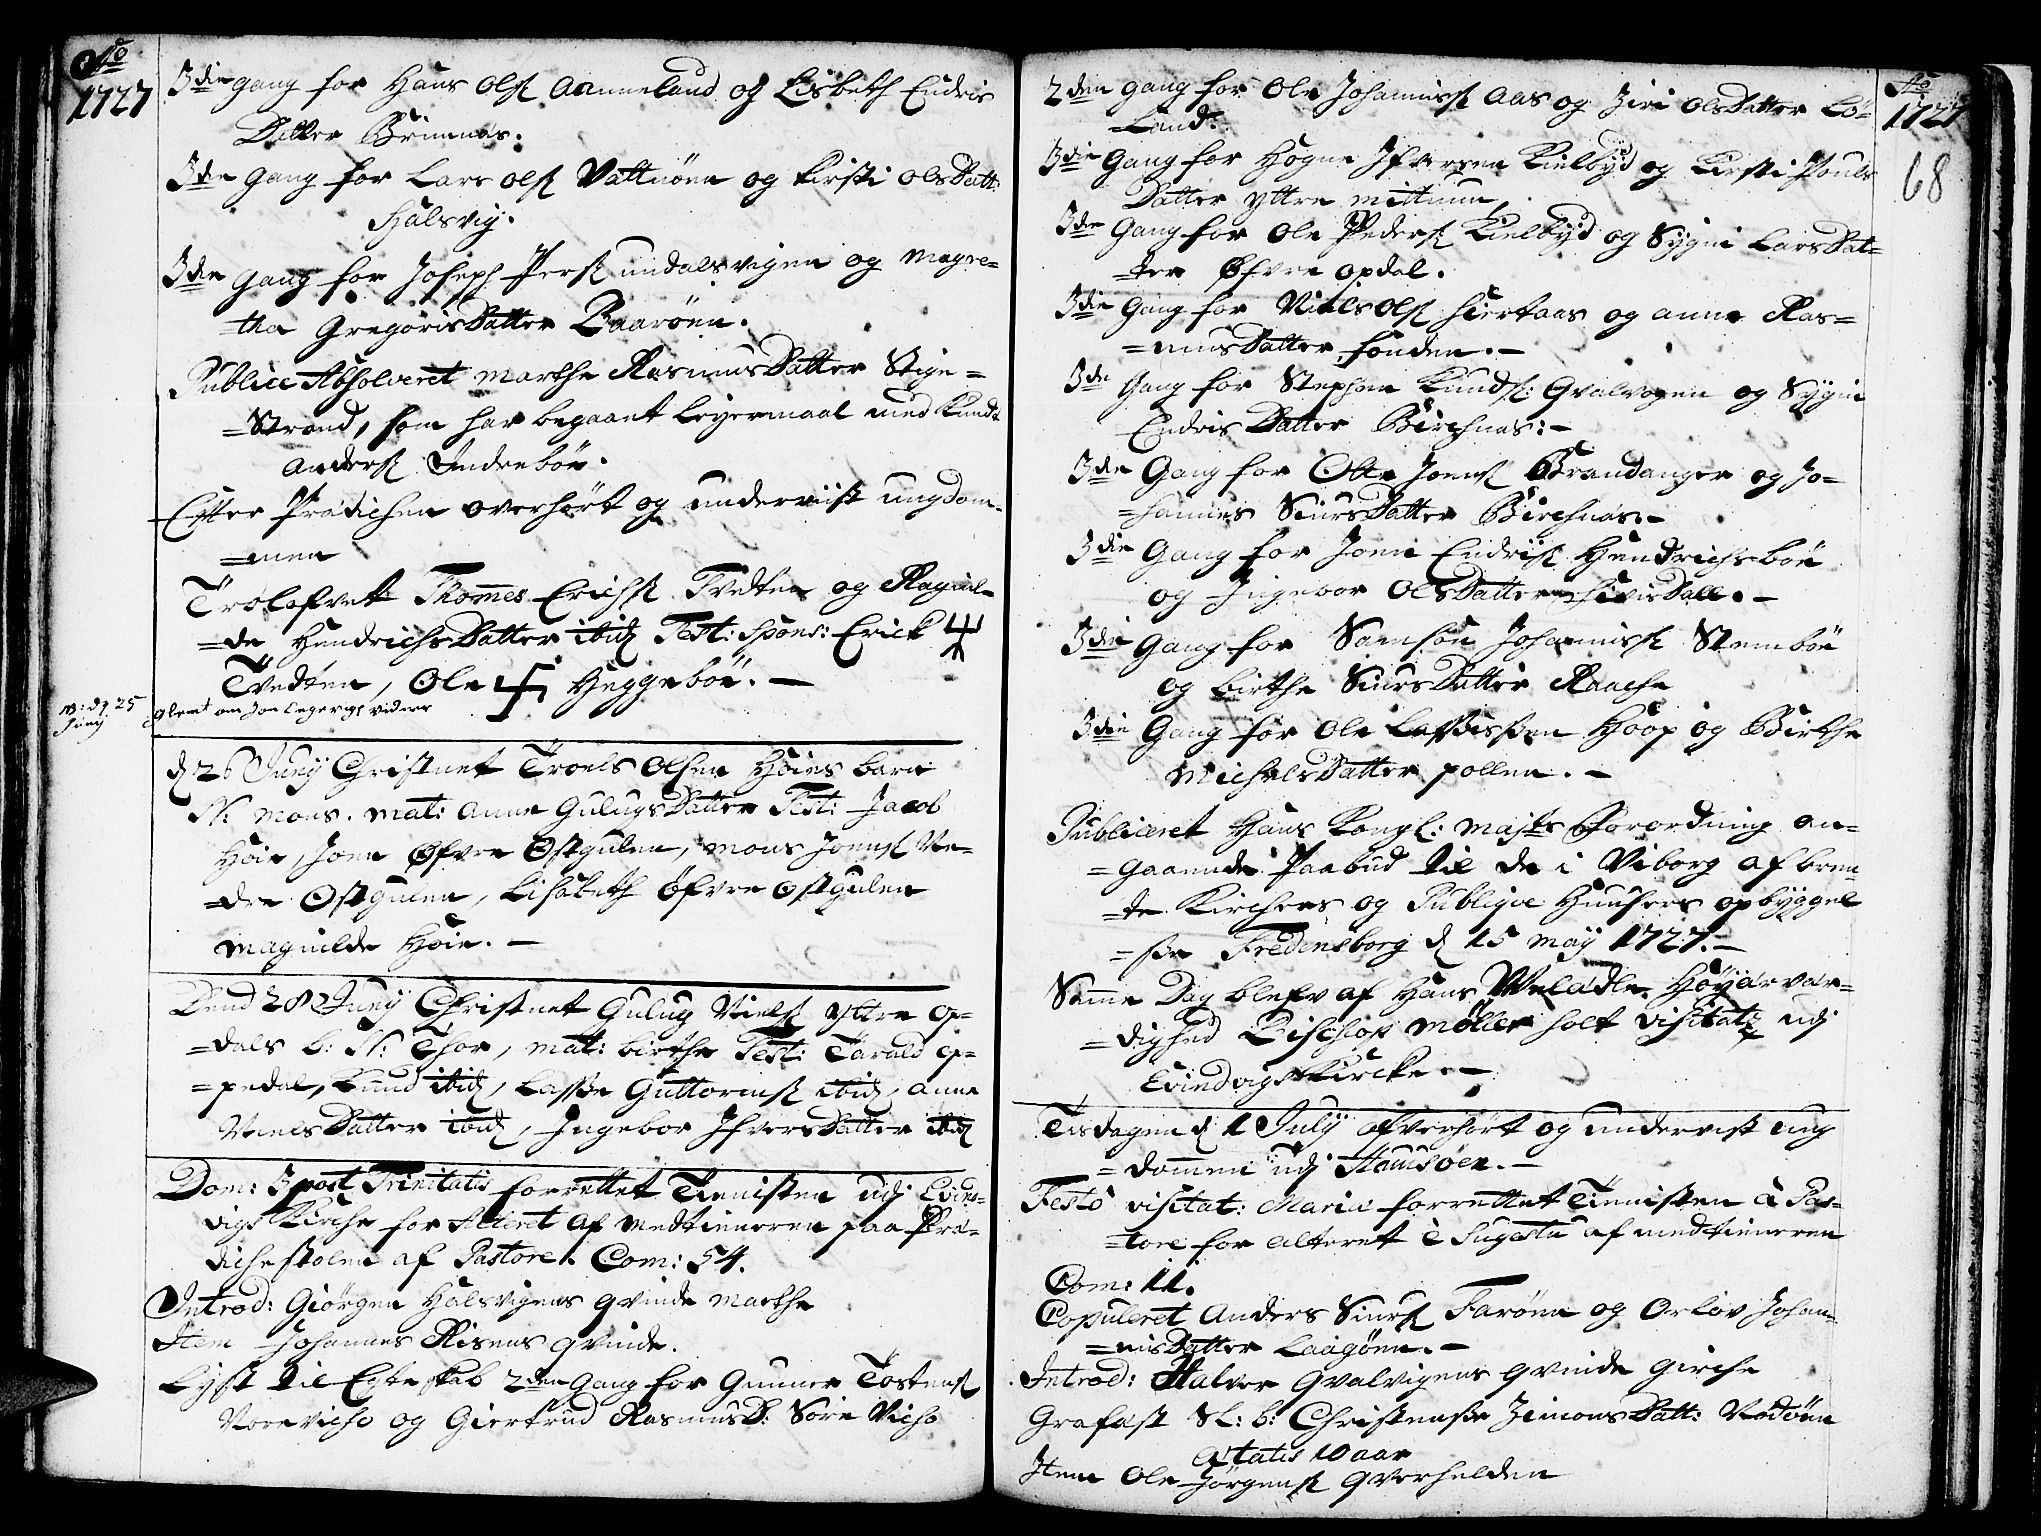 Ao
1727
3die gang for Hans Olsß Aanneland og Lisbeth Endris
Datter Brimnæs.
3die gang for Lars Olsß Vattnöen og Kirsti OlsDatt:
Halsvig.
3die gang for Joseph Persß undalsvigen og Magre=
=tha GregorisDatter Baaröen.
Publice Absolveret Marthe RasmusDatter Stige=
=Strand, som har begaaet leyermaal med Knud
Andersß Indreböe.
Efter Prædichen overhört og underviist ungdom=
=men
Trolofvet Thommes Erichsß Tvedten og Ragnil=
=de HendrichsDatter ibid Test: Spons: Erick
Tvedten, Ole Heggeböe.
N: d 25 Juny glemt om Jon
d 26 Juny Christnet Troels Olsen Höies barn
N: Mons. mat: Anne GulugsDatter Test: Jacob
Höie, Joen Öfvre Østgulen, Mons Joensß Ne=
=dre Østgulen, Lisabeth Öfvre Østgulen
Magnilde Höie.
Dend 28 Juny Christnet Gulug Nielsß Yttre Op=
=dals b: N: Thor, mat: birthe Test: Tarald Op=
=pedal, Knud ibid, Lasse Guttormsß ibid, Anne
NielsDatter ibid, Ingebor IfversDatter ibid
Dom: 3 post Trinitatis forrettet Tienisten udj Evind=
vigs Kirche for Alteret af Medtieneren paa Præ=
dichestolen af Pastore. Com: 54.
Introd: Giörgen Halsvigens qvinde Marthe
Item Johannes Risens qvinde.
Lyst til Egteskab 2den Gang for Gunner Tostensß
Norevicho og Giertrud RasmusD: Söre Vicho
2den gang for Ole Johannisß Aas og Ziri OlsDatter Lö=
=land.
3die Gang for Hogne Ifversen Kielbyd og Kirsti Pouls
Datter Yttre Mittuun,
3die Gang for Ole Pedersß Kielbyd og Sygni LarsDat=
=ter Øfvre Opdal.
3die Gang for Niels Olsß Hiertaas og Anne Ras=
=musDatter Sönden.
3die Gang for Stephen Knudsß: Qvalvogen og Sygni
Endris Datter Birchnæs:
3die Gang for Otte Joensß Brandanger og Jo=
=hannes SiursDatter Birchnæs
3die Gang for Joen Endrisß Hendrichsböe
og Ingebor OlsDatter HisDall.
3die Gang for Samson Johannisß Stemböe
og Birthe SiursDatter Raache
3die Gang for Ole Lassessen Hoop og Birthe
MichelsDatter pollen.
Publiceret Hans Kongl: Majts Forordning an=
=gaaende Paabud til de i Viborg afbren=
=te Kirchers og Publiqve Huusers opbyggel
=se Fredensborg d 15 May 1727.
Samme Dag blefv af Hans Velædle Höyærvær=
=dighed Bischop Möller holt visitatz udj
Evindvigs Kircke.
Tisdagen d 1 July ofverhört og underviist ung
=dommen udj
Festo visitat: Mariæ forrettet Tienisten à Pas=
=tore for alteret è Sugestu af medtieneren
Com: 11.
Copuleret Anders Siursß Faröen og Orlov Johan=
=nisDatter Laagöen.
Introd: Halver Qvalvigens qvinde Girthe
Grafæst Sl: b: Christense ZimonsDatt: Nødöen
Ætatis 10 aar
Item Ole Jörgensß Qverhelden
Ao
1727
68